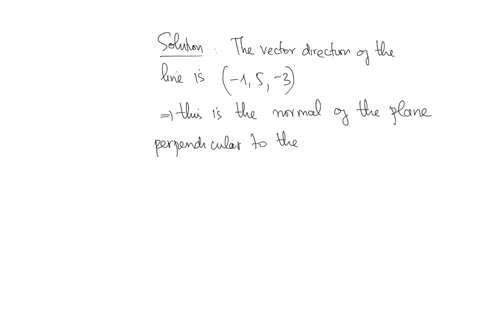 Solution : The vector direction of the
line is (-1, 5, -3)
⇒ this is the normal of the plane
perpendicular to the